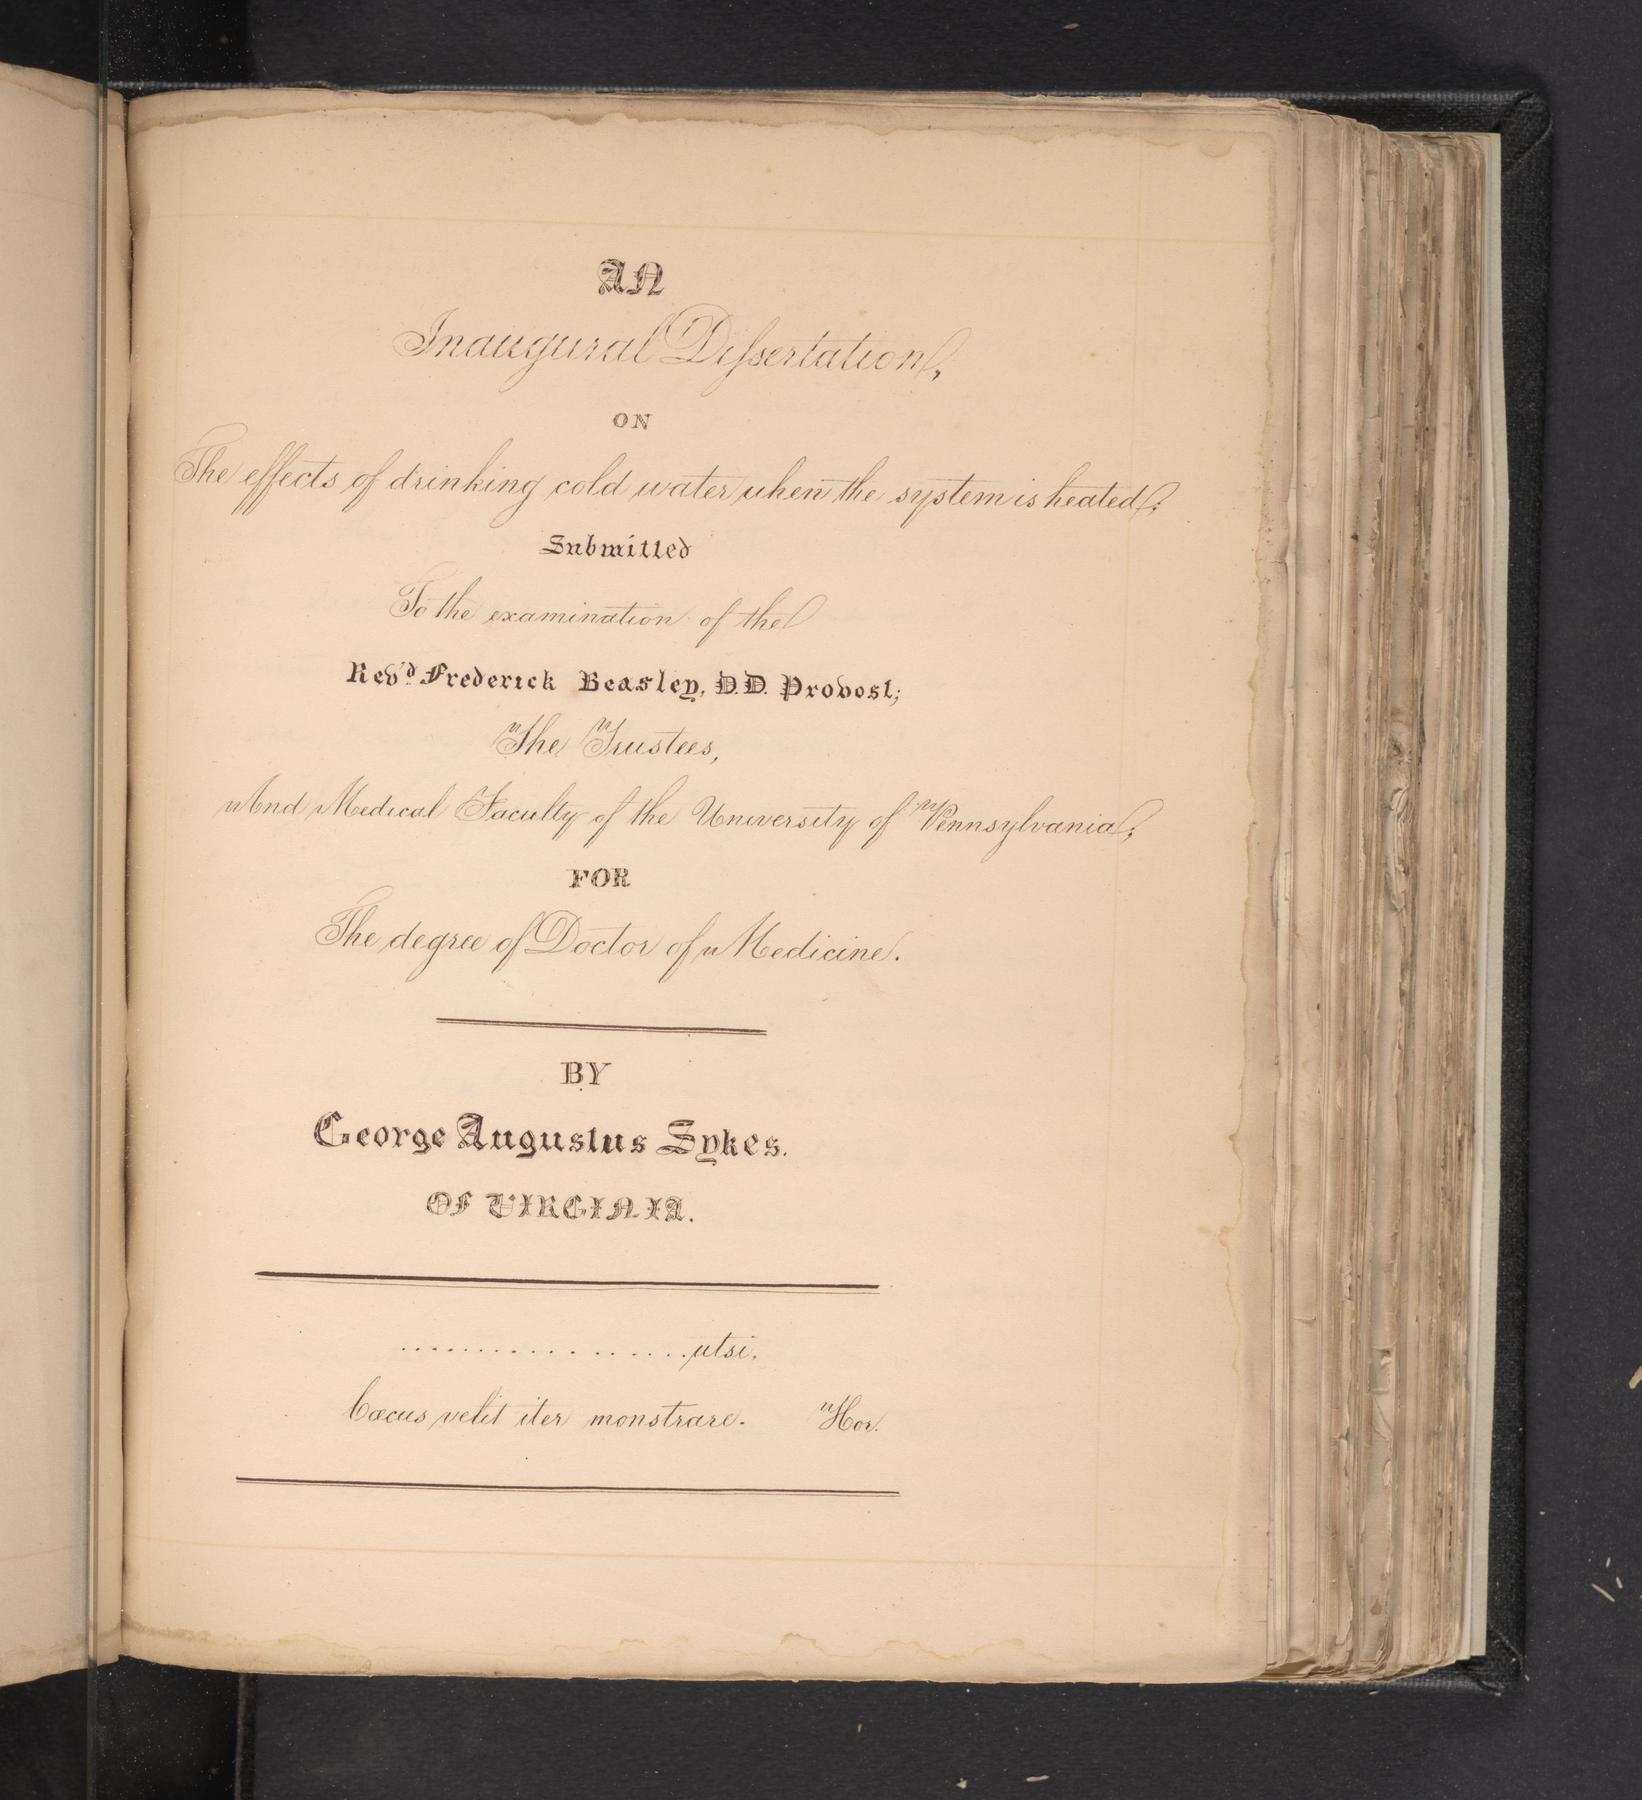 AN
Inaugural Dissertation,
ON
The effects of drinking cold water when the system is heated;
Submitted
To the examination of the
Rev'd Frederick Beasley, D.D. Provost;
The Trustees,
And Medical Faculty of the University of Pennsylvania;
FOR
The degree of Doctor of Medicine.
BY
George Augustus Sykes.
OF VIRGINIA.
..................utsi,
Cæcus velit iter monstrare. Hor.